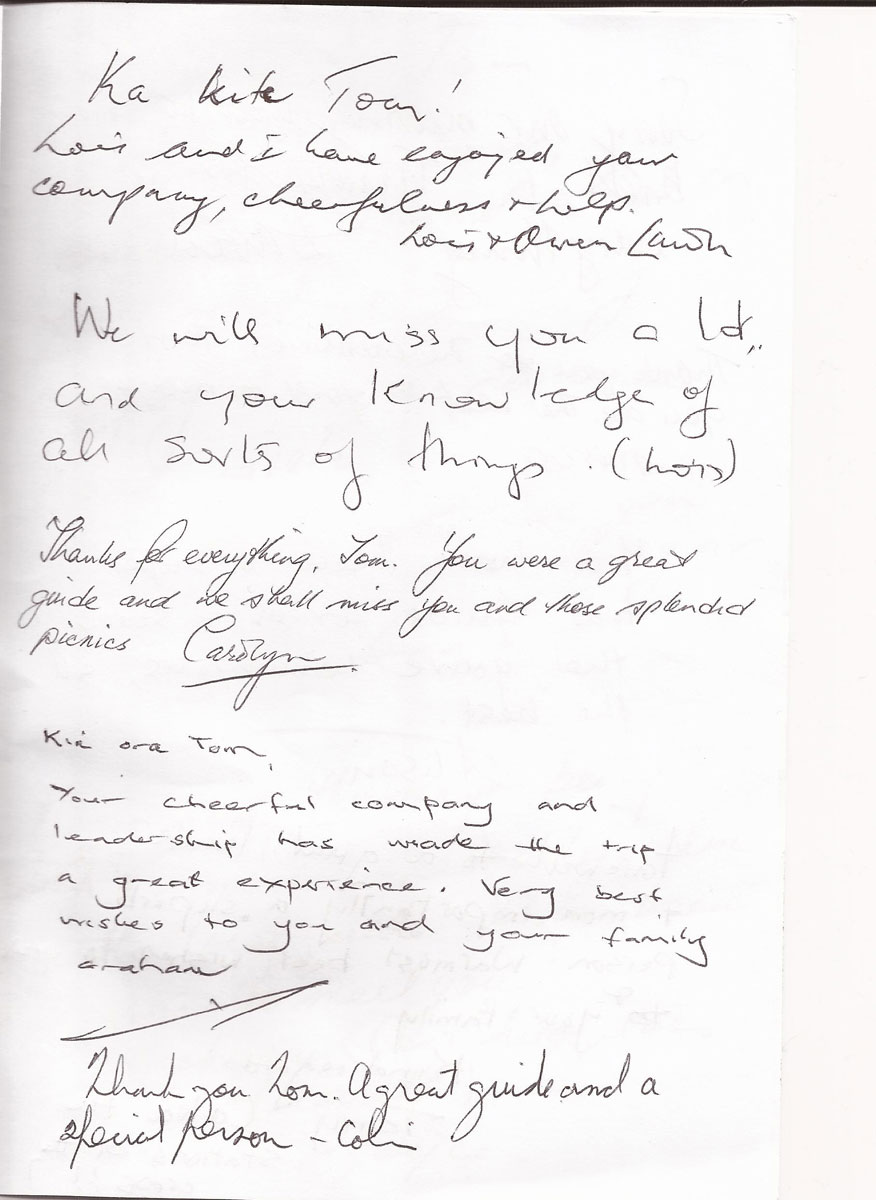 Ka kite Tom!
Lois and I have enjoyed your
company, cheerfulness + help.
Lois + Owen
We will miss you a lot,,
and your knowledge of
all sorts of things. (Lois)
Thanks for everything, Tom. You were a great
guide and we shall miss you and those splendid
picnics Carolyn.
Kia ora Tom,
Your cheerful company and
leadership has made the trip
a great experience. Very best
wishes to you and your family
Graham
Thank you Tom. A great guide and a
special person - Colin